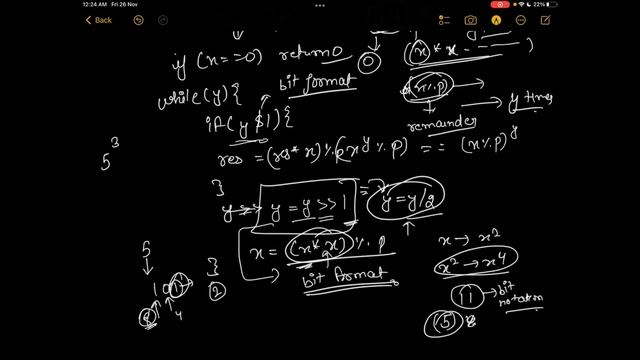 12:24 AM Fri 26 Nov
22%
Back
if (x==0) return 0
0
(x * x - - - - )
bit format
while(y){
(x%p)
y times
if(y & 1){
remainder
5^3
res = (res * x) % p
x^y % p) == (x%p)^y
}
y = y >> 1
y = y/2
5
x = (x * x) % p
x → x²
x² → x4
101
}
2
bit format
1 → bit notation
4
5